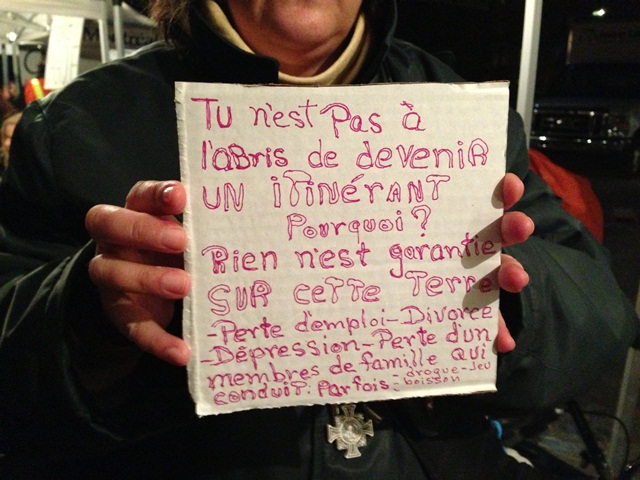 Tu n'est Pas à
l'aBris de devenir
UN iTiNérANT
Pourquoi ?
Rien n'est garantie
SUR ceTTe Terre
-Perte d'emploi-Divorce
-Dépression-Perte d'un
membres de famille qui
conduit: Parfois: -drogue-Jeu
-boisson